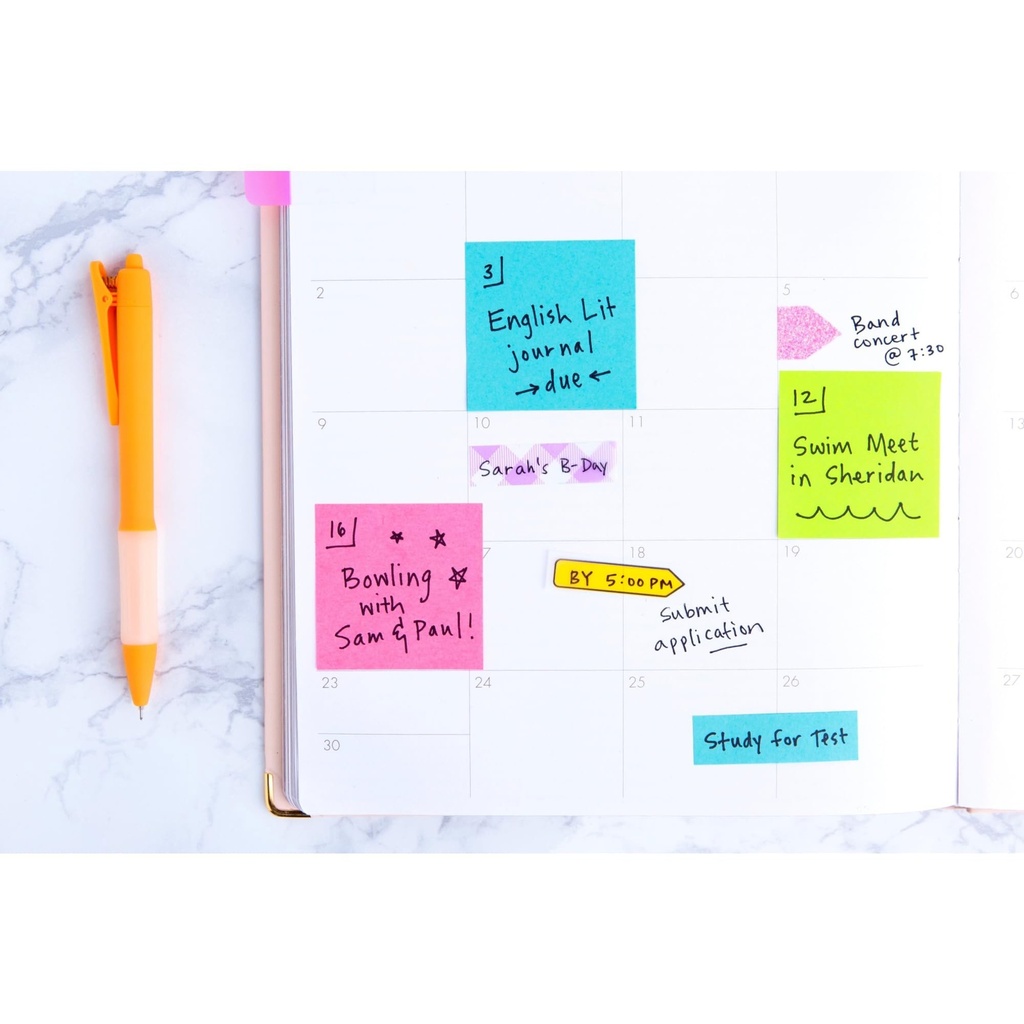 3
English Lit
journal
→due←
2
5
6
Band
concert
@ 7:30
12
Swim Meet
in Sheridan
9
10
11
13
Sarah's B-Day
16
Bowling
with
Sam & Paul!
7
18
19
20
BY 5:00 PM
Submit
application
23
24
25
26
27
Study for Test
30